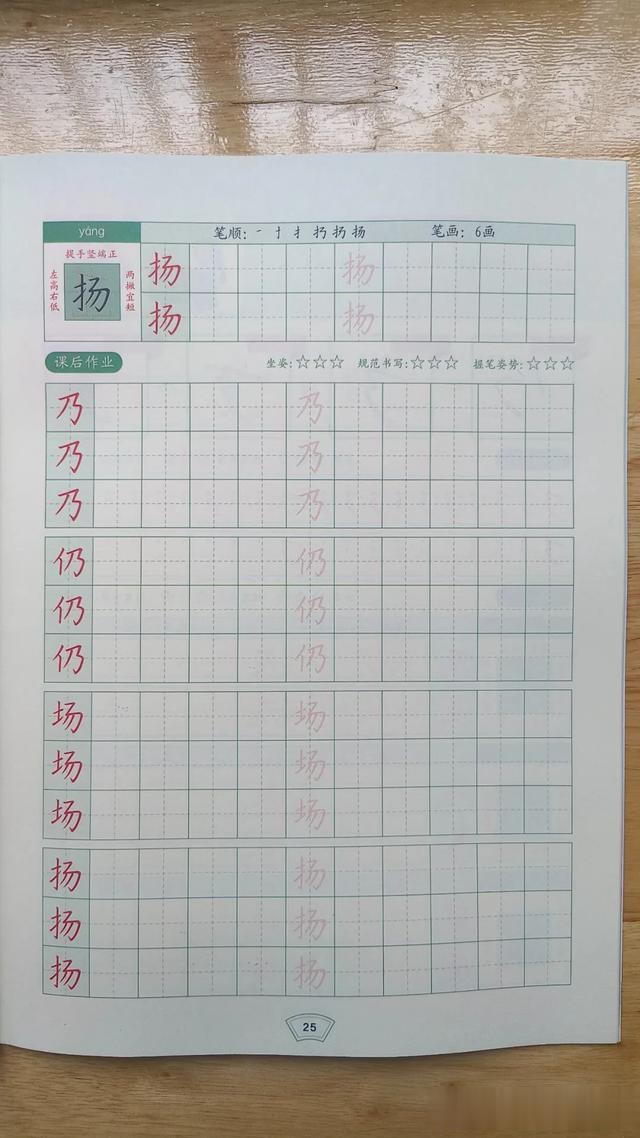 yáng 笔顺：一 十 扌 扔 扬 扬 笔画：6画
提手竖端正
左高右低 扬 两撇宜短
扬 扬
扬 扬
课后作业 坐姿：☆☆☆ 规范书写：☆☆☆ 握笔姿势：☆☆☆
乃 乃
乃 乃
乃 乃
仍 仍
仍 仍
仍 仍
场 场
场 场
场 场
扬 扬
扬 扬
扬 扬
25